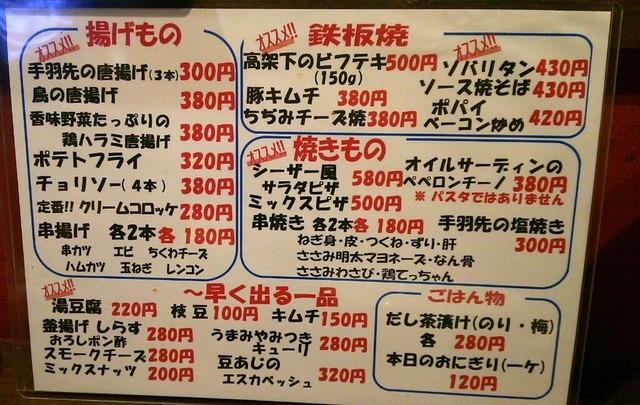 オススメ!! 揚げもの
手羽先の唐揚げ(3本) 300円
鳥の唐揚げ 380円
香味野菜たっぷりの
鶏ハラミ唐揚げ 380円
ポテトフライ 320円
チョリソー(4本) 380円
定番!! クリームコロッケ 280円
串揚げ 各2本 各180円
串カツ エビ ちくわチーズ
ハムカツ 玉ねぎ レンコン
オススメ!! 鉄板焼
高架下のビフテキ 500円
(150g)
豚キムチ 380円
ちぢみチーズ焼 380円
オススメ!!
ソバリタン 430円
ソース焼そば 430円
ポパイ
ベーコン炒め 420円
オススメ!! 焼きもの
シーザー風
サラダピザ 580円
ミックスピザ 500円
オイルサーディンの
ペペロンチーノ 380円
※パスタではありません
串焼き 各2本 各180円
ねぎ身・皮・つくね・ずり・肝
ささみ明太マヨネーズ・なん骨
ささみわさび・鶏てっちゃん
手羽先の塩焼き
300円
オススメ!! 〜早く出る一品
湯豆腐 220円 枝豆 100円 キムチ 150円
釜揚げしらす
おろしポン酢 280円
スモークチーズ 280円
ミックスナッツ 200円
うまみやみつき
キューリ 280円
豆あじの
エスカベッシュ 320円
ごはん物
だし茶漬け(のり・梅)
各 280円
本日のおにぎり(一ケ)
120円